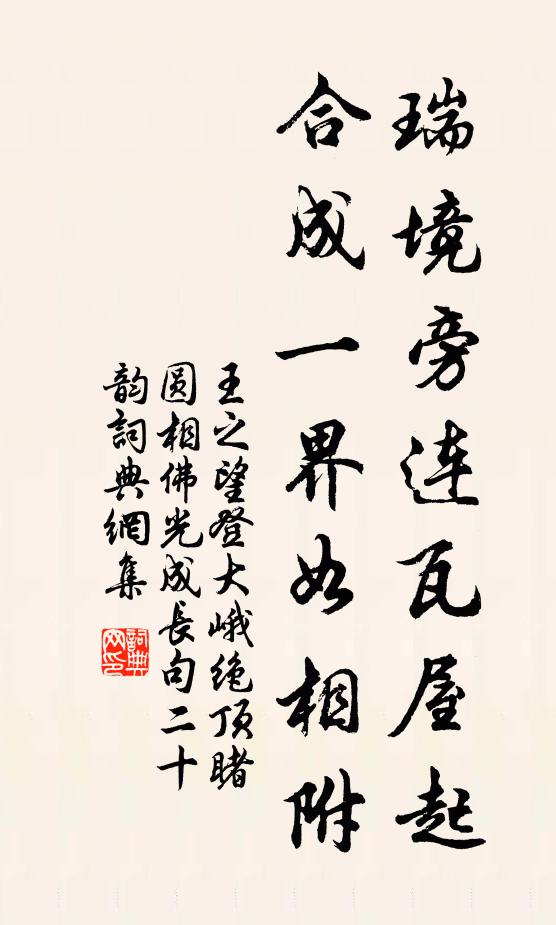 瑞境旁连瓦屋起
合成一界如相附
王之望登大峨绝顶睹
圆相佛光成长句二十
韵詞典網集
詞典
网印